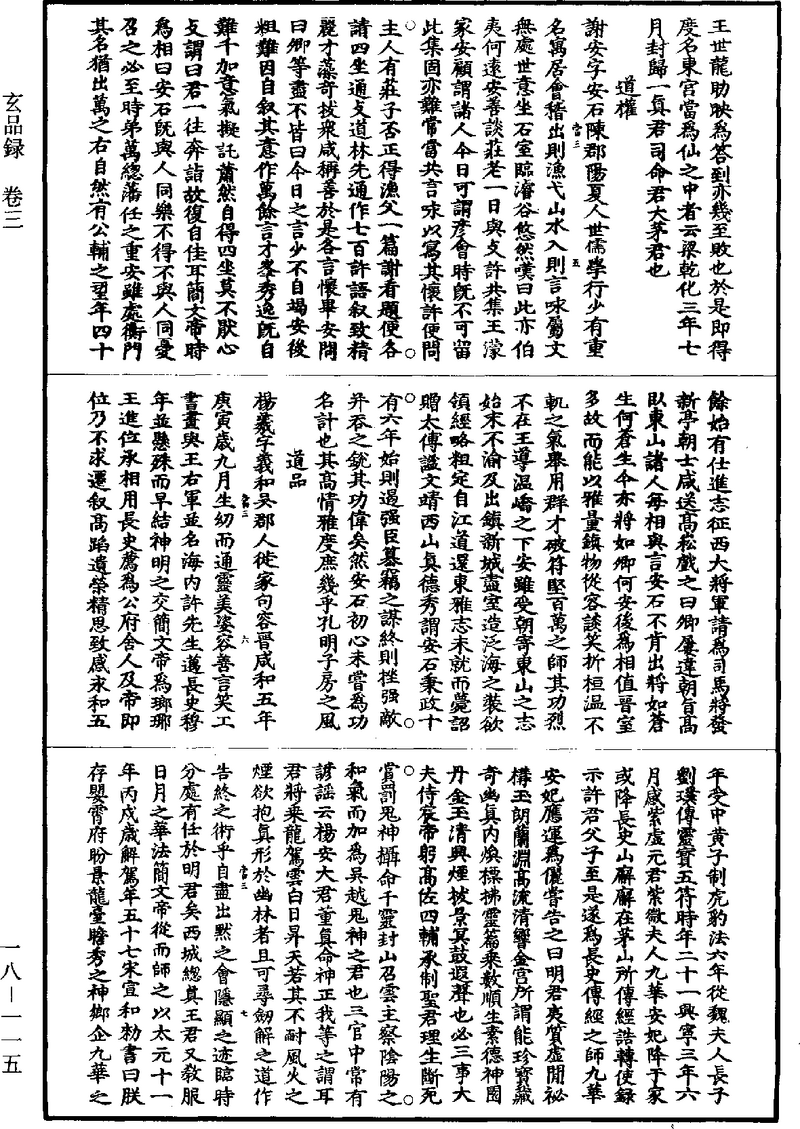 王世龍助映爲答到亦幾至敗也於是即得
度名東宮當爲仙之中者云梁乾化三年七
月封歸一真君司命君大茅君也
道權
謝安字安石陳郡陽夏人世儒學行少有重
名寓居會稽出則漁弋山水入則言咏屬文
無處世意坐石室臨濬谷悠然嘆曰此亦伯
夷何遠安善談莊老一日與支許共集王濛
家安顧謂諸人今日可謂彥會時旣不可留
此集固亦難常當共言咏以寫其懷許便問
主人有莊子否正得漁父一篇謝看題便各
請四坐通支道林先通作七百許語叙致精
麗才藻奇拔衆咸稱善於是各言懷畢安問
曰卿等盡不皆曰今日之言少不自竭安後
粗難因自叙其意作萬餘言才峯秀逸旣自
難干加意氣擬託蕭然自得四坐莫不猒心
支謂曰君一往奔詣故復自佳耳簡文帝時
爲相曰安石旣與人同樂不得不與人同憂
召之必至時弟萬總藩任之重安雖處衡門
其名猶出萬之右自然有公輔之望年四十
餘始有仕進志征西大將軍請爲司馬將發
新亭朝士咸送高崧戲之曰卿屢違朝旨高
臥東山諸人每相與言安石不肯出將如蒼
生何蒼生今亦將如卿何安後爲相值晉室
多故而能以雅量鎮物從容談笑折桓温不
軌之氣舉用群才破符堅百萬之師其功烈
不在王導温嶠之下安雖受朝寄東山之志
始末不渝及出鎮新城盡室造泛海之裝欲
須經略粗定自江道還東雅志未就而薨詔
贈太傅謚文靖西山真德秀謂安石秉政十
有六年始則遏强臣篡竊之謀終則挫强敵
并吞之銳其功偉矣然安石初心未嘗爲功
名計也其高情雅度庶幾乎孔明子房之風
道品
楊羲字義和吴郡人徙家句容晉咸和五年
庚寅歲九月生幼而通靈美姿容善言笑工
書畫與王右軍並名海内許先生邁長史穆
年並懸殊而早結神明之交簡文帝爲瑯琊
王進位丞相用長史薦爲公府舍人及帝即
位乃不求遷叙高蹈遺榮精思致感永和五
年受中黄子制虎豹法六年從魏夫人長子
劉璞傳靈寶五符時年二十一興寧三年六
月感紫虚元君紫微夫人九華安妃降于家
或降長史山廨廨在茅山所傳經誥轉使録
示許君父子至是遂爲長史傳經之師九華
安妃應運爲儷嘗告之曰明君夷質虚閒祕
構玉朗蘭淵高流清響金宫所謂能珍寶藏
奇幽真内焕標拂靈篇乘數順生素德神圉
丹金玉清興煙拔景冥鼓遐聲也必三事大
夫侍宸帝躬高佐四輔承制聖君理生斷死
賞罰鬼神攝命千靈封山召雲主察陰陽之
和氣而加爲吴越鬼神之君也三官中常有
諺謡云楊安大君董真命神正我等之謂耳
君將乘龍駕雲白日昇天若其不耐風火之
煙欲抱真形於幽林者且可尋劒解之道作
告終之術乎自盡出黙之會隱顯之迹臨時
分處有任於明君矣西城總真王君又教服
日月之華法簡文帝從而師之以太元十一
年丙戌歲解駕年五十七宋宣和勑書曰朕
存嬰霄府盼景龍臺瞻秀之神鄉企九華之
玄品録 卷三
一八—一一五